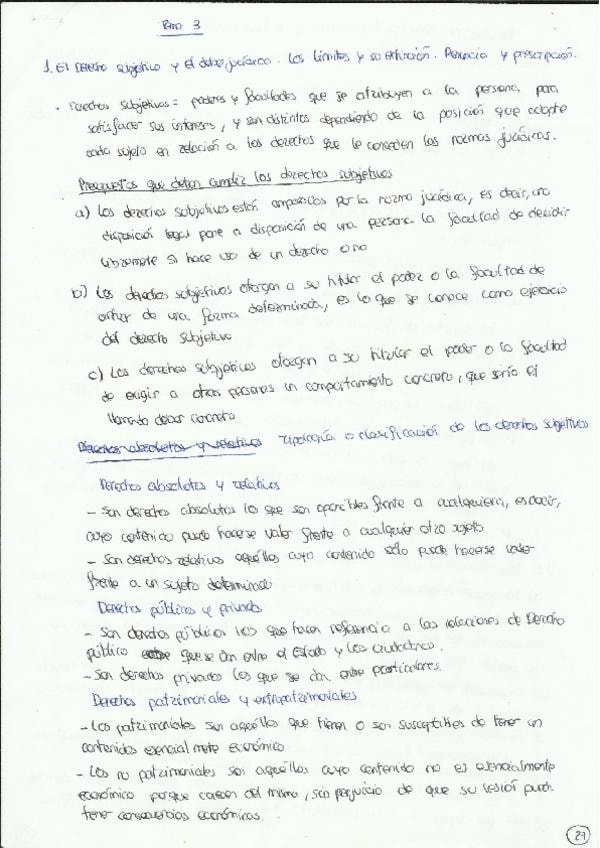 Tema 3
1. El Derecho subjetivo y el deber jurídico. Los límites y su extinción. Renuncia y prescripción.
· Derechos subjetivos = poderes y facultades que se atribuyen a la persona para
satisfacer sus intereses, y son distintos dependiendo de la posición que adopte
cada sujeto en relación a los derechos que le conceden las normas jurídicas.
Presupuestos que deben cumplir los derechos subjetivos
a) Los derechos subjetivos están amparados por la norma jurídica, es decir, una
disposición legal pone a disposición de una persona la facultad de decidir
libremente si hace uso de un derecho o no
b) Los derechos subjetivos otorgan a su titular el poder o la facultad de
actuar de una forma determinada, es lo que se conoce como ejercicio
del derecho subjetivo
c) Los derechos subjetivos otorgan a su titular el poder o la facultad
de exigir a otras personas un comportamiento concreto, que sería el
llamado deber concreto
Derechos absolutos y relativos Tipología o clasificación de los derechos subjetivos
Derechos absolutos y relativos
- Son derechos absolutos lo que son oponibles frente a cualquiera, es decir,
cuyo contenido puede hacerse valer frente a cualquier otro sujeto
- Son derechos relativos aquéllos cuyo contenido sólo puede hacerse valer
frente a un sujeto determinado
Derechos públicos y privados
- Son derechos públicos los que hacen referencia a las relaciones de Derecho
público que se dan entre el Estado y los ciudadanos.
- Son derechos privados los que se dan entre particulares.
Derechos patrimoniales y extrapatrimoniales
- Los patrimoniales son aquéllos que tienen o son susceptibles de tener un
contenido esencialmente económico
- Los no patrimoniales son aquéllos cuyo contenido no es esencialmente
económico porque carecen del mismo, sin perjuicio de que su lesión pueda
tener consecuencias económicas.
27